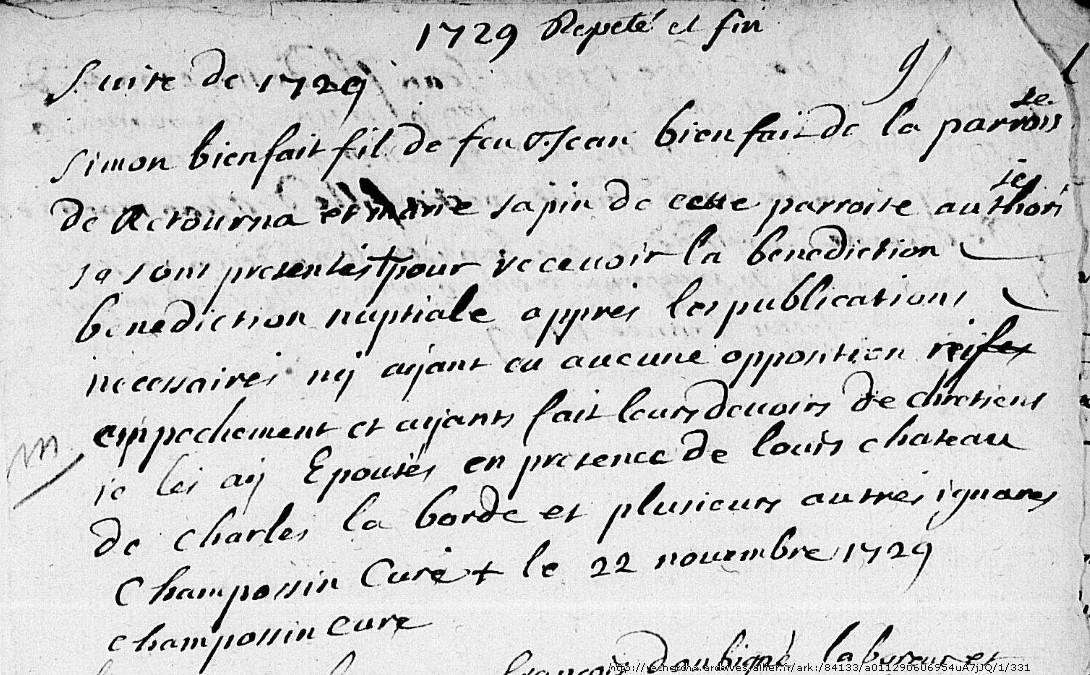 1729 Repeté et fin
Suite de 1729
Simon bienfait fil de feu Jean bienfait de la parroisse
de Retourna et marie sapin de cette parroise authorisiés
se sont presentes + pour recevoir la benediction
benediction nuptiale appres les publications
necessaires ny aÿant eu aucune opposition
empechement et aÿants fait leurs devoirs de chretiens
je les aÿ Epousés en presence de louis chateau
de charles la borde et plusieurs autres ignares
Champossin Curé + le 22 novembre 1729
champossin cure
françois labureur et
http://recherche.archives.allier.fr/ark:/84133/a011290606954uA7jJQ/1/331